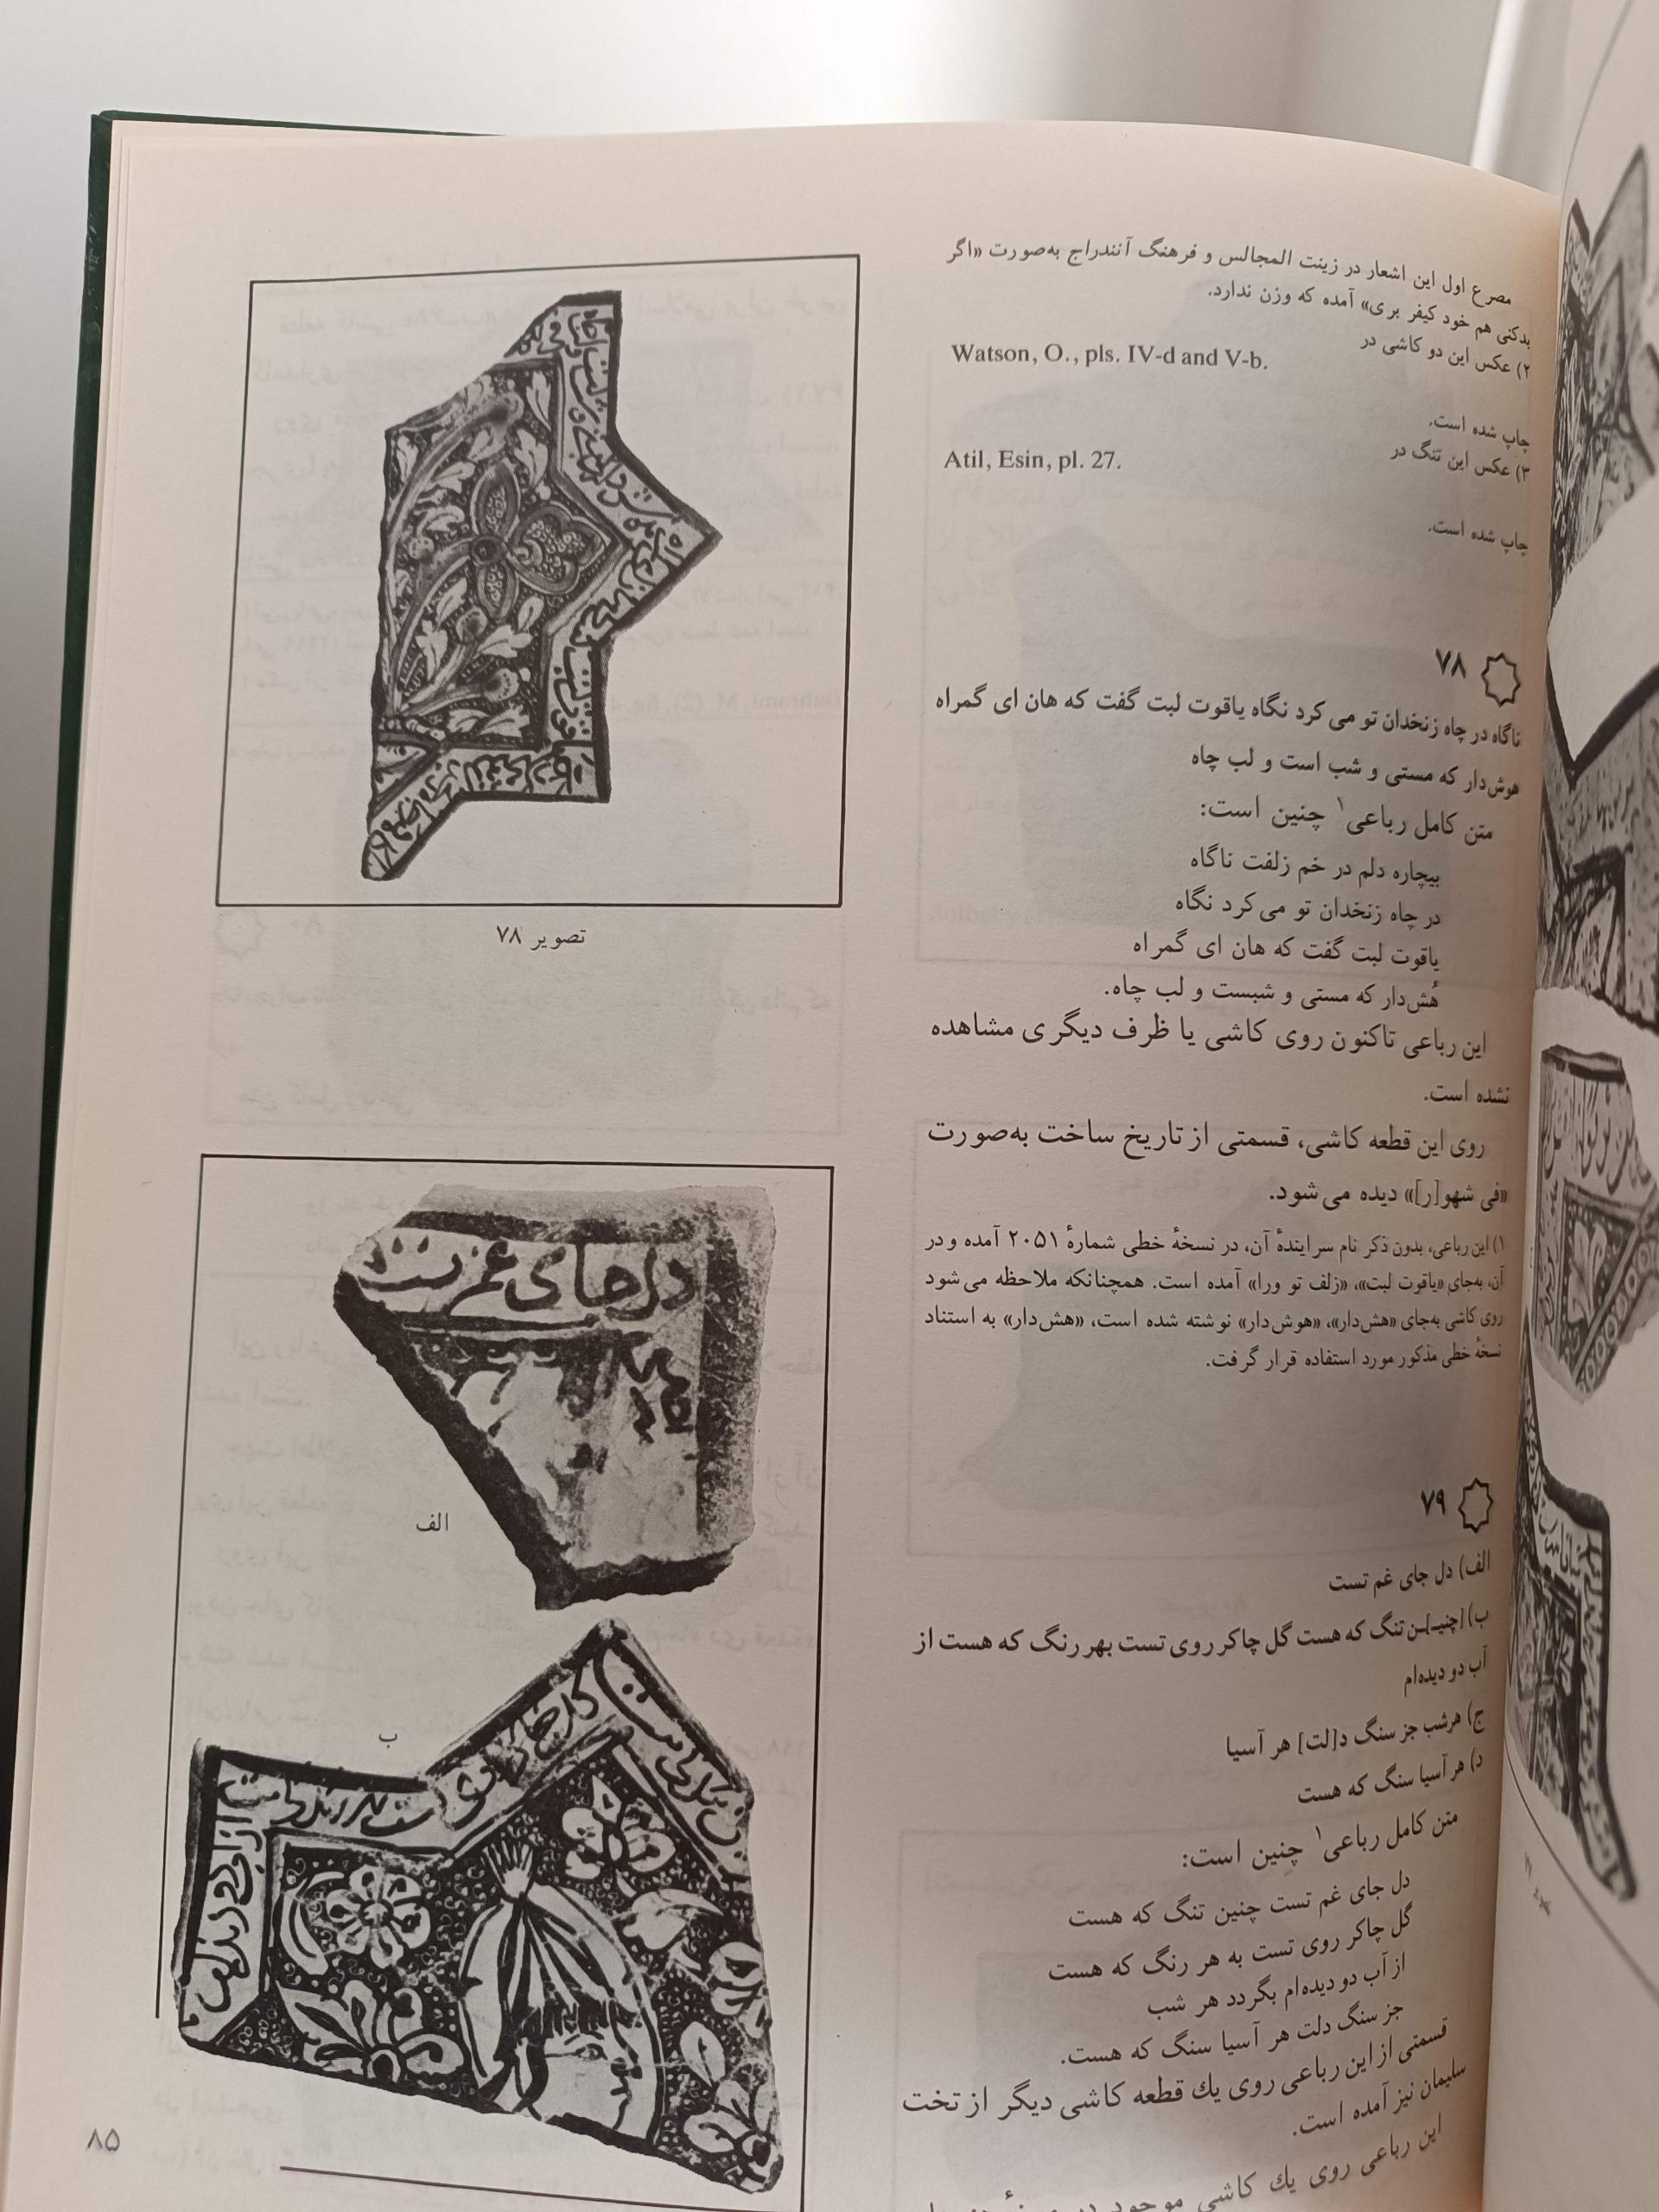 مصرع اول این اشعار در زینت المجالس و فرهنگ آنندراج به‌صورت «اگر
بدکنی هم خود کیفر بری» آمده که وزن ندارد.
۲) عکس این دو کاشی در
Watson, O., pls. IV-d and V-b.
چاپ شده است.
۳) عکس این تنگ در
Atil, Esin, pl. 27.
چاپ شده است.
۷۸
ناگاه در چاه زنخدان تو می‌کرد نگاه یاقوت لبت گفت که هان ای گمراه
هوش‌دار که مستی و شب است و لب چاه
متن کامل رباعی۱ چنین است:
بیچاره دلم در خم زلفت ناگاه
در چاه زنخدان تو می‌کرد نگاه
یاقوت لبت گفت که هان ای گمراه
هُش‌دار که مستی و شبست و لب چاه.
این رباعی تاکنون روی کاشی یا ظرف دیگری مشاهده
نشده است.
روی این قطعه کاشی، قسمتی از تاریخ ساخت به‌صورت
«فی شهو[ر]» دیده می‌شود.
۱) این رباعی، بدون ذکر نام سرایندهٔ آن، در نسخهٔ خطی شمارهٔ ۲۰۵۱ آمده و در
آن، به‌جای «یاقوت لبت»، «زلف تو ورا» آمده است. همچنانکه ملاحظه می‌شود
روی کاشی به‌جای «هش‌دار»، «هوش‌دار» نوشته شده است، «هش‌دار» به استناد
نسخهٔ خطی مذکور مورد استفاده قرار گرفت.
۷۹
الف) دل جای غم تست
ب) [چنیـ]ـن تنگ که هست گل چاکر روی تست بهر رنگ که هست از
آب دو دیده‌ام
ج) هرشب جز سنگ د[لت] هر آسیا
د) هر آسیا سنگ که هست
متن کامل رباعی۱ چنین است:
دل جای غم تست چنین تنگ که هست
گل چاکر روی تست به هر رنگ که هست
از آب دو دیده‌ام بگردد هر شب
جز سنگ دلت هر آسیا سنگ که هست.
قسمتی از این رباعی روی یك قطعه کاشی دیگر از تخت
سلیمان نیز آمده است.
این رباعی روی یك کاشی موجود در
تصویر ۷۸
دل جای غم تست
الف
ب
۸۵